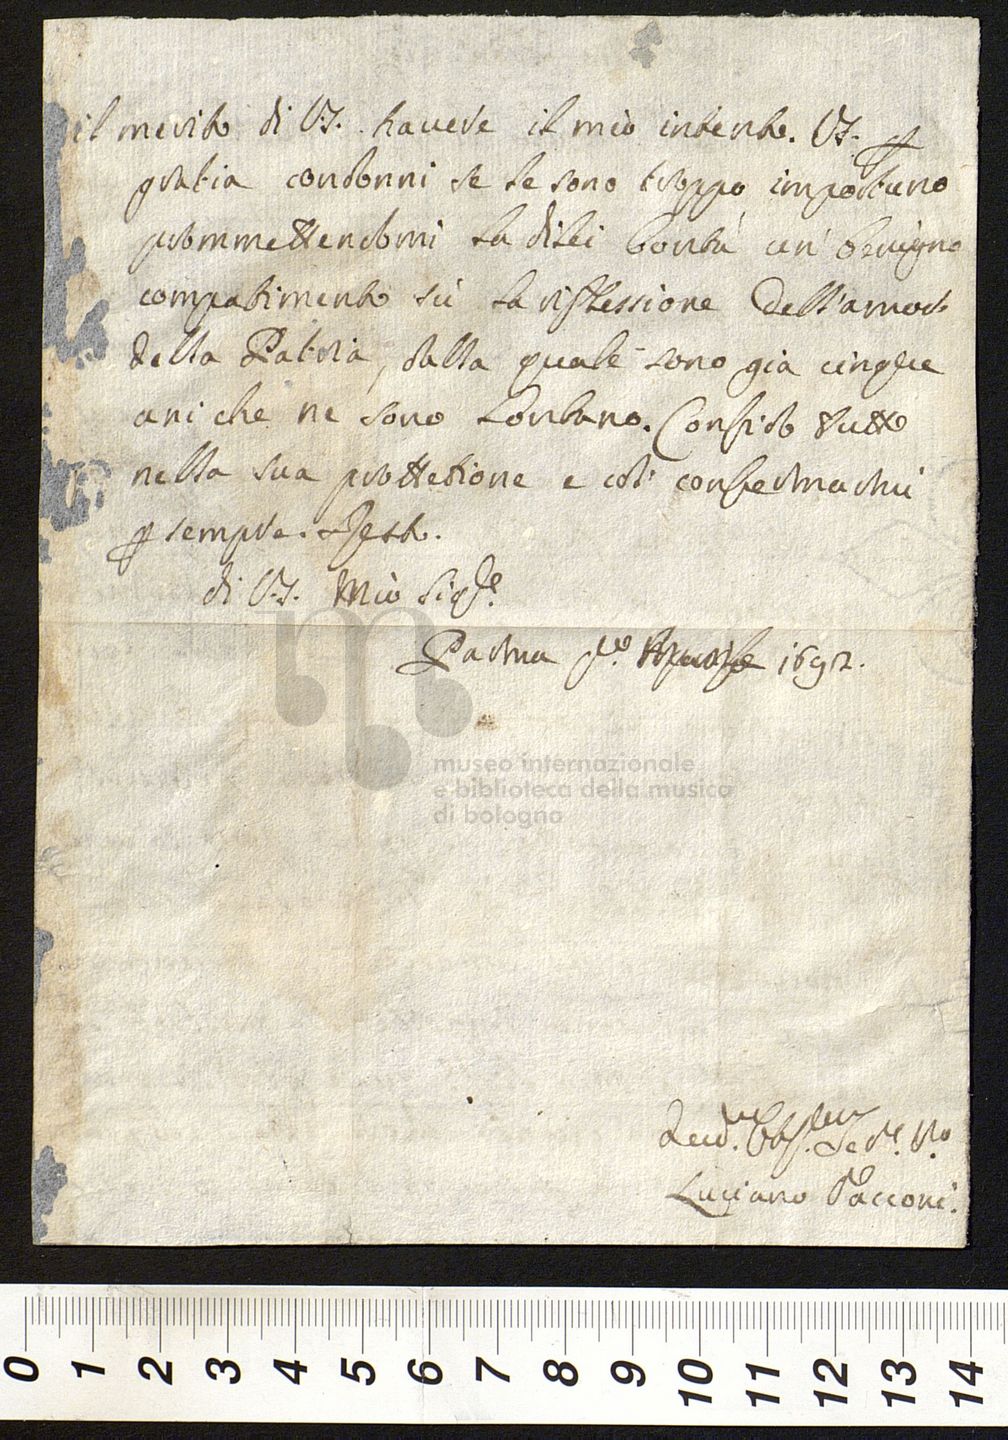 il merito di V.S. havere il mio intento. VS. p
gratia condonni se le sono troppo importuno
promettendomi la dilei bontà un' benigno
compatimento sù la riflessione dell'amor
della Patria, dalla quale sono già cinque
ani che ne sono lontano. Confido tutto
nella sua prottetione e col' confermarmi
p sempre. Resto.
di V.S. Mio Sig.re
Parma p.o Aprile 1692.
museo internazionale
e biblioteca della musica
di bologna
Ser.re V.o
Luciano Pacconi.
0 1 2 3 4 5 6 7 8 9 10 11 12 13 14